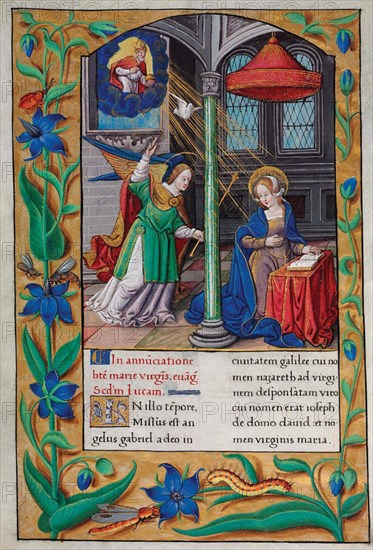 In annūciatione
bte marie virgis, evāg,
Scdm Lucam.
IN illo tēpore,
Missus est an
gelus gabriel a deo in
civitatem galilee cui no
men nazareth ad virgi
nem desponsatam viro
cui nomen erat ioseph
de domo david. et no
men virginis maria.